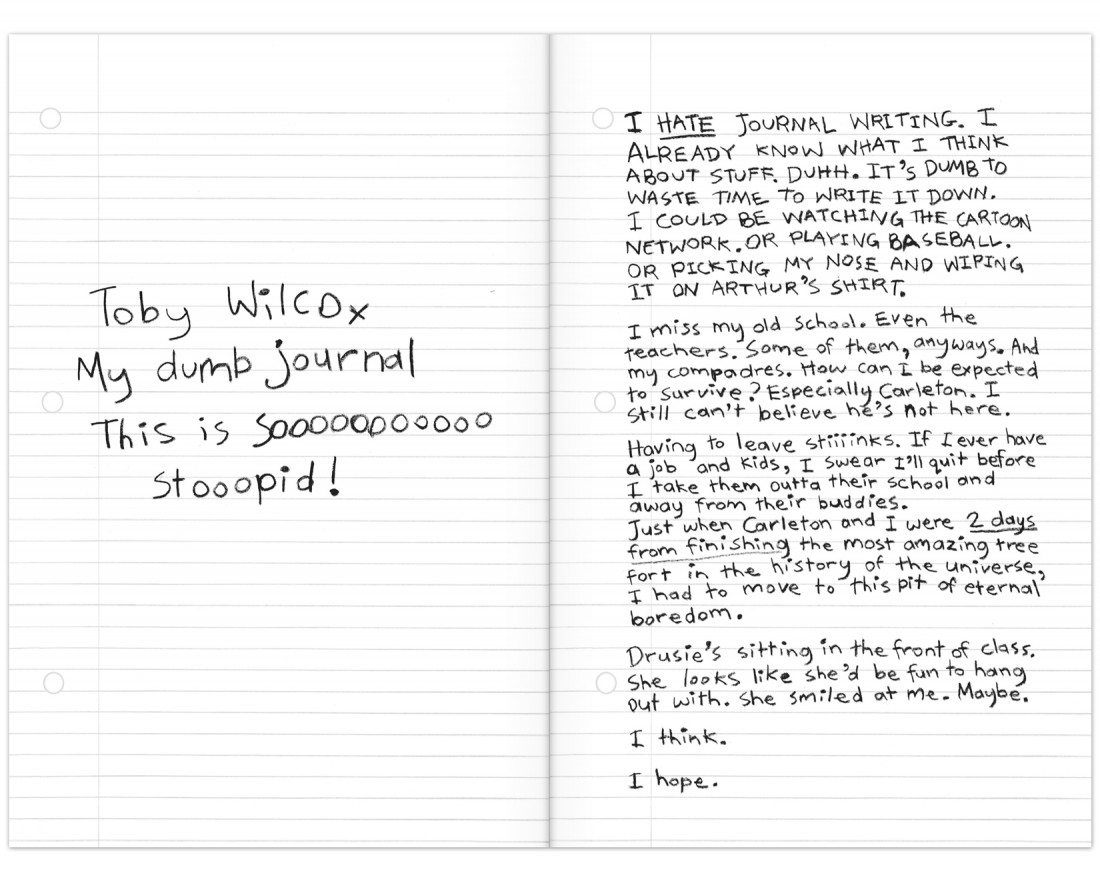 Toby Wilcox
My dumb journal
This is soooooooooooo
stooopid!
I HATE JOURNAL WRITING. I
ALREADY KNOW WHAT I THINK
ABOUT STUFF. DUHH. IT'S DUMB TO
WASTE TIME TO WRITE IT DOWN.
I COULD BE WATCHING THE CARTOON
NETWORK. OR PLAYING BASEBALL.
OR PICKING MY NOSE AND WIPING
IT ON ARTHUR'S SHIRT.
I miss my old school. Even the
teachers. Some of them, anyways. And
my compadres. How can I be expected
to survive? Especially Carleton. I
still can't believe he's not here.
Having to leave stiiiinks. If I ever have
a job and kids, I swear I'll quit before
I take them outta their school and
away from their buddies.
Just when Carleton and I were 2 days
from finishing the most amazing tree
fort in the history of the universe,
I had to move to this pit of eternal
boredom.
Drusie's sitting in the front of class.
She looks like she'd be fun to hang
out with. She smiled at me. Maybe.
I think.
I hope.